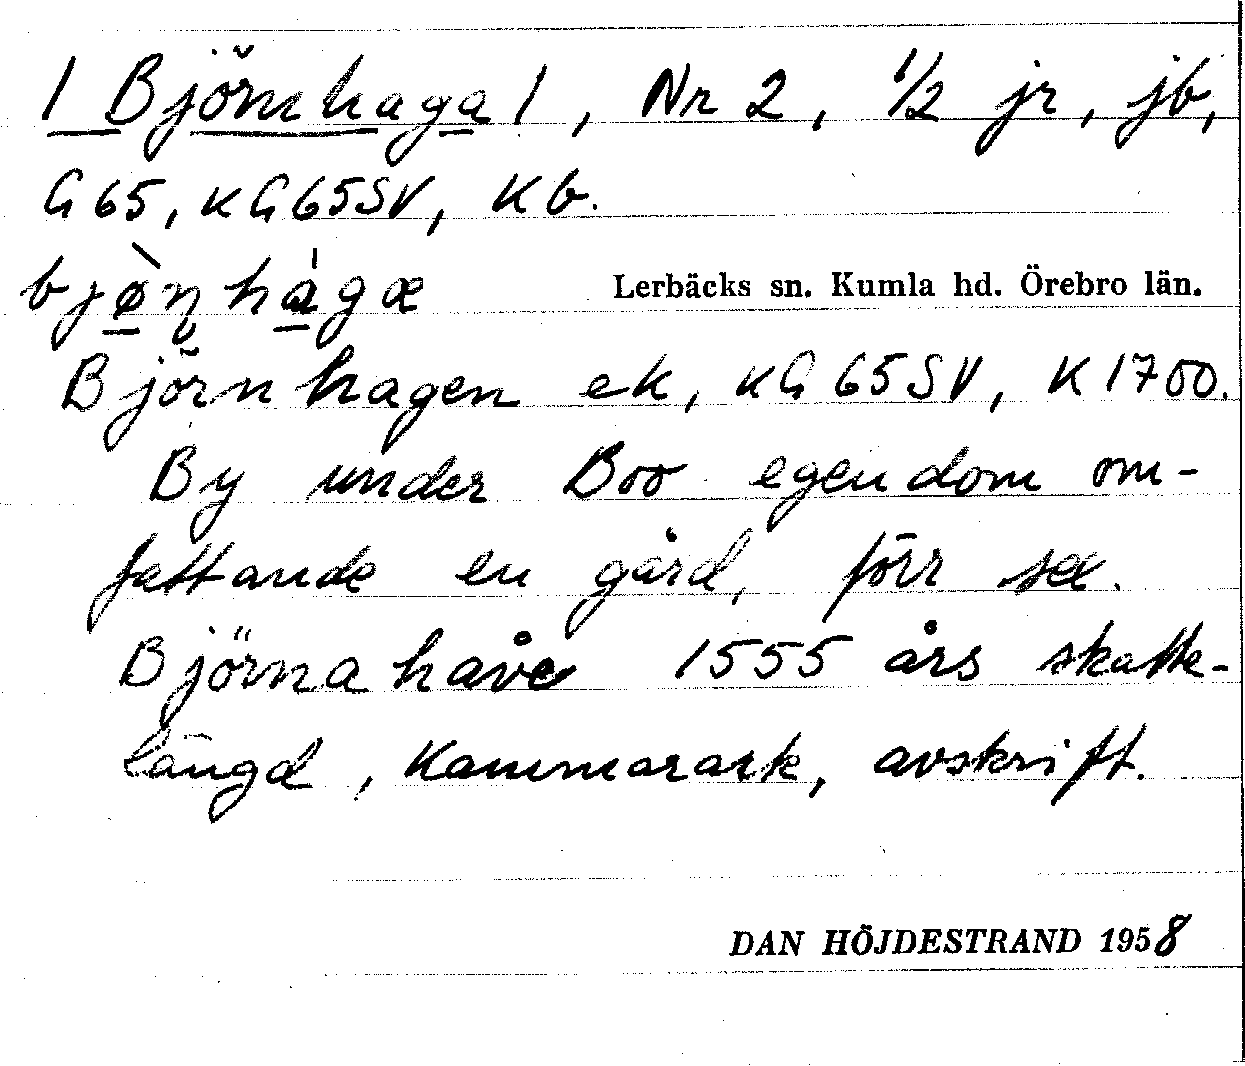 / Björnhaga /, Nr 2, 1/2 jr, jb,
G 65, KG65SV, Kb.
bjø̀ṇhágæ Lerbäcks sn. Kumla hd. Örebro län.
Björnhagen ek, KG65SV, K1700.
By under Boo egendom om-
fattande en gård, förr sex.
Björnahåve 1555 års skatte-
längd, Kammarark, avskrift.
DAN HÖJDESTRAND 1958